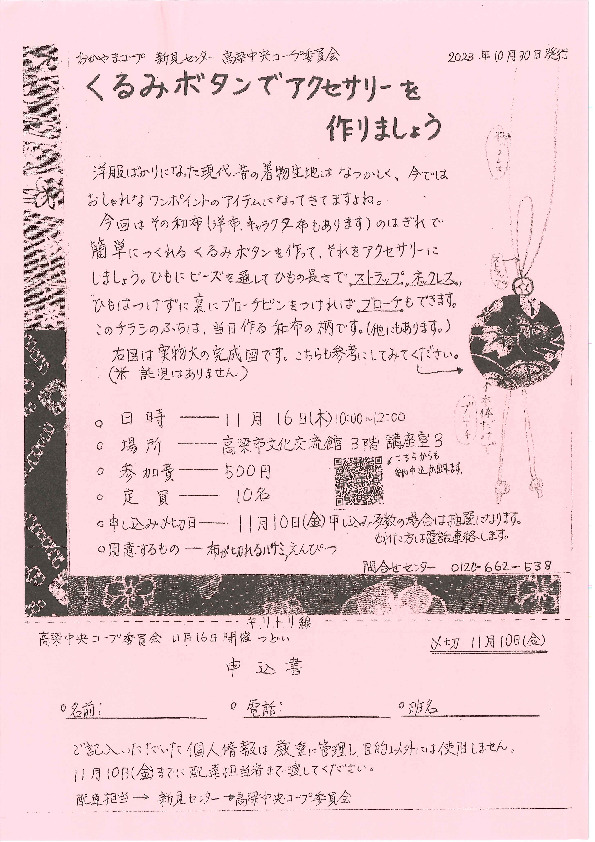 おかやまコープ 新見センター 高梁中央コープ委員会
2023年10月30日発行
くるみボタンでアクセサリーを
作りましょう
洋服ばかりになった現代、昔の着物生地は なつかしく、今では
おしゃれな ワンポイントのアイテムになってきてますよね。
今回は その和布(洋布、キャラクター布もあります)のはぎれで
簡単につくれる くるみボタンを作って、それをアクセサリーに
しましょう。ひもにビーズを通して ひもの長さで、ストラップ、ネックレス、
ひもはつけずに裏にブローチピンをつければ ブローチもできます。
このチラシのふちは、当日作る 和布の柄です。(他にもあります。)
右図は 実物大の完成図です。こちらも参考にしてみてください。
(※ 託児はありません)
○ 日時 ―― 11月16日(木)10:00~12:00
○ 場所 ―― 高梁市文化交流館 3階 講座室3
○ 参加費 ―― 500円
○ 定員 ―― 10名
こちらからも
○申し込み〆切日 ―― 11月10日(金)申し込み多数の場合は抽選になります。
もれた方は電話連絡します。
○用意するもの ― 布が切れるハサミ、えんぴつ
問合せセンター 0120-662-538
キリトリ線
高梁中央コープ委員会 11月16日開催 つどい
〆切 11月10日(金)
申込書
○名前: ○電話: ○班名
ご記入いただいた個人情報は 厳重に管理し、目的以外には使用しません。
11月10日(金)までに配達担当者まで渡してください。
配達担当 → 新見センター → 高梁中央コープ委員会